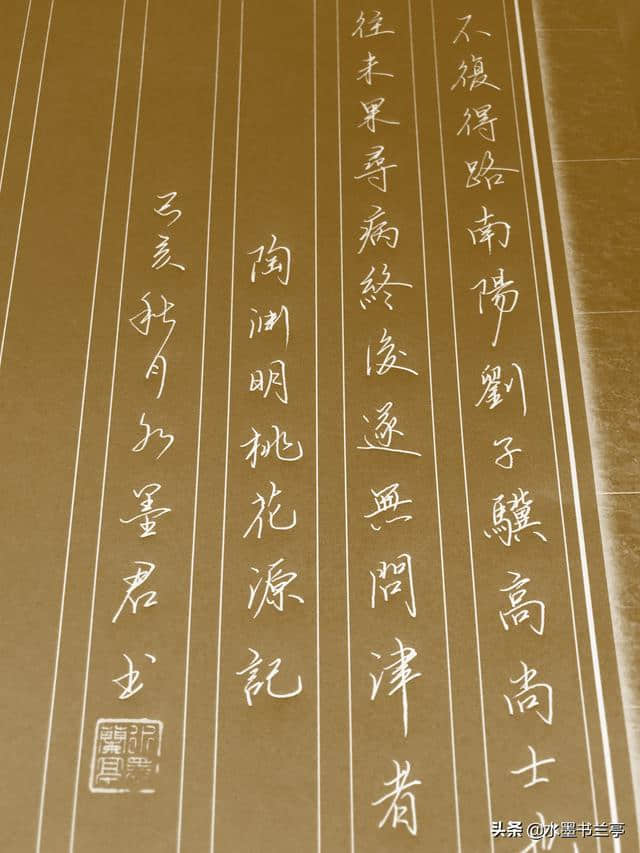 不復得路南陽劉子驥高尚士也
往未果尋病終後遂無問津者
陶渊明桃花源記
己亥秋月水墨君书
水墨蘭亭
头条 @水墨书兰亭